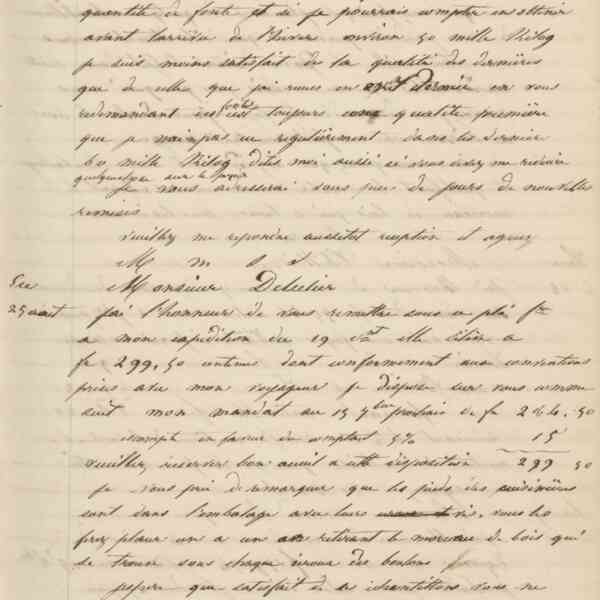 quantité de fonte et si je pourrais compter en obtenir
avant larrivée de l'hiver environ 50 mille Kilog
je suis moins satisfait de la qualité des dernières
que de celle que jai reçues en avril dernier en vous
redemandant ces fontes cest toujours qualité première
que je nai pas eu régulièrement dans les dernier
60 mille Kilog dites moi aussi si vous devez me
quelquechose sur le prix
Je vous adresserai sous peu de jours de nouvelles
remises
Veuillez me repondre aussitot reception et agreez
M m s s
25 aout Monsieur Deletier
Jai l'honneur de vous remettre sous ce pli fre
a mon expedition du 19 Ct elle s'élève a
fr 299,50 contenus dont conformement aux conventions
prises avec mon voyageur je dispose sur vous comme
suit mon mandat au 15 7bre prochain de fr 284,50
escompte en faveur du comptant 5% 15
Veuillez reserver bon acueil a cette disposition 299 50
Je vous prie de remarquer que les pieds des cuisinières
sont dans l'embalage avec leurs vis, vous les
ferez placer un a un en retirant le morceau de bois qui
se trouve sous chaque écrou des boulons
Jespere que satisfait de ces échantillons vous ne